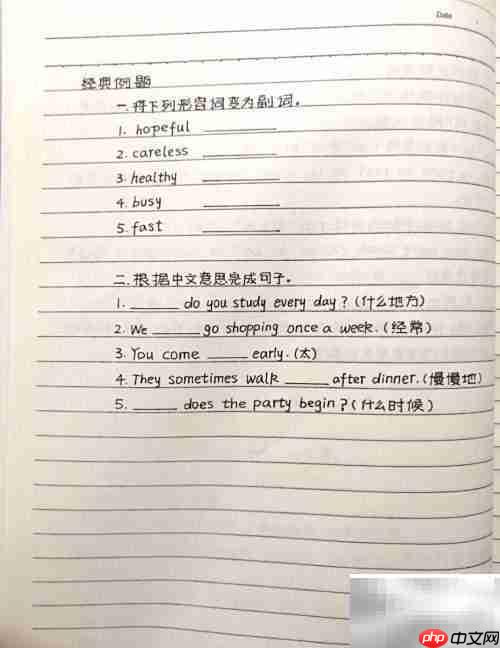 Date
经典例题
一.将下列形容词变为副词。
1. hopeful ________
2. careless ________
3. healthy ________
4. busy ________
5. fast ________
二.根据中文意思完成句子。
1. ______ do you study every day? (什么地方)
2. We ______ go shopping once a week. (经常)
3. You come _____ early. (太)
4. They sometimes walk ______ after dinner. (慢慢地)
5. ______ does the party begin? (什么时候)
php 中文网